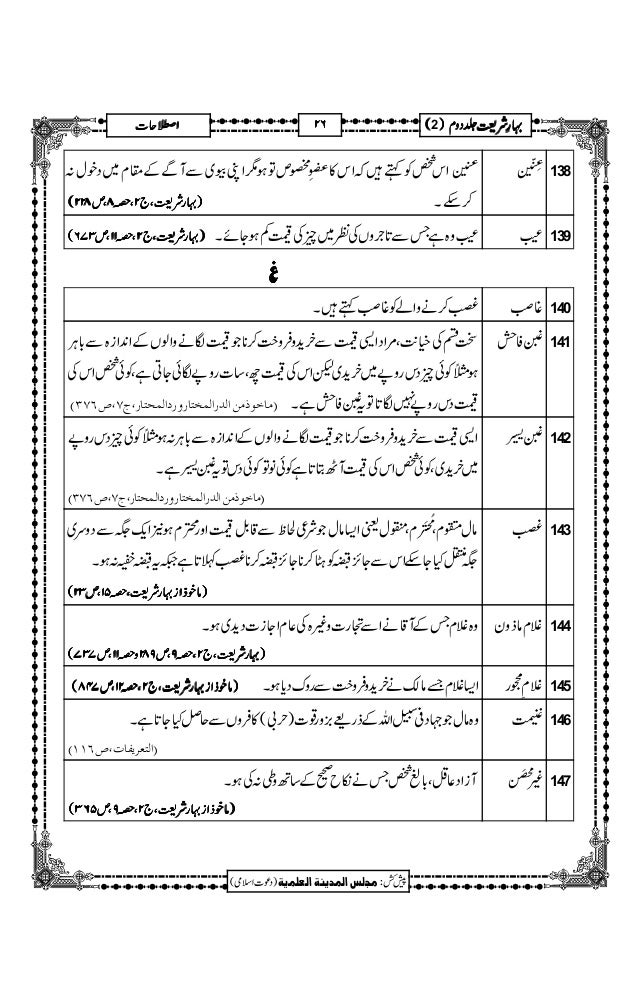 بہارِ شریعت جلد دوم (2) ۲٦ اصطلاحات
138 عِنِّین عنین اس شخص کو کہتے ہیں کہ اس کا عضوِ مخصوص تو ہو مگر اپنی بیوی سے آگے کے مقام میں دخول نہ
کر سکے۔ (بہارِ شریعت، ج۲، حصہ ۸، ص ۲۲۸)
139 عیب عیب وہ ہے جس سے تاجروں کی نظر میں چیز کی قیمت کم ہو جائے۔ (بہارِ شریعت، ج۲، حصہ ۱۱، ص ۶۷۳)
غ
140 غاصب غصب کرنے والے کو غاصب کہتے ہیں۔
141 غبن فاحش سخت قسم کی خیانت، مراد ایسی قیمت سے خرید و فروخت کرنا جو قیمت لگانے والوں کے اندازہ سے باہر
ہو مثلاً کوئی چیز دس روپے میں خریدی لیکن اس کی قیمت چھ، سات روپے لگائی جاتی ہے، کوئی شخص اس کی
قیمت دس روپے نہیں لگاتا تو یہ غبن فاحش ہے۔ (ماخوذ من الدرالمختار وردالمحتار، ج۷، ص ۳۷۶)
142 غبن یسیر ایسی قیمت سے خرید و فروخت کرنا جو قیمت لگانے والوں کے اندازہ سے باہر نہ ہو مثلاً کوئی چیز دس روپے
میں خریدی، کوئی شخص اس کی قیمت آٹھ بتاتا ہے کوئی نو تو کوئی دس تو یہ غبن یسیر ہے۔
(ماخوذ من الدرالمختار وردالمحتار، ج۷، ص ۳۷۶)
143 غصب مال متقوم، مُحترم، منقول یعنی ایسا مال جو شرعی لحاظ سے قابل قیمت اور محترم ہو نیز ایک جگہ سے دوسری
جگہ منتقل کیا جا سکے اس سے جائز قبضہ کو ہٹا کر ناجائز قبضہ کرنا غصب کہلاتا ہے جبکہ یہ قبضہ خفیۃً نہ ہو۔
(ماخوذ از بہارِ شریعت، حصہ ۱۵، ص ۲۳)
144 غلام ماذون وہ غلام جس کے آقا نے اسے تجارت وغیرہ کی عام اجازت دیدی ہو۔
(بہارِ شریعت، ج۲، حصہ ۹، ص ۲۸۹ و حصہ ۱۱، ص ۷۳۷)
145 غلامِ مجور ایسا غلام جسے مالک نے خرید و فروخت سے روک دیا ہو۔ (ماخوذ از بہارِ شریعت، ج۲، حصہ ۱۲، ص ۸۴۷)
146 غنیمت وہ مال جو جہاد فی سبیل اللہ کے ذریعے بزور قوت (حربی) کافروں سے حاصل کیا جاتا ہے۔
(التعریفات، ص ۱۱۶)
147 غیر محصَن آزاد عاقل، بالغ شخص جس نے نکاح صحیح کے ساتھ وطی نہ کی ہو۔
(ماخوذ از بہارِ شریعت، ج۲، حصہ ۹، ص ۳۶۵)
پیش کش: مجلس المدینۃ العلمیۃ (دعوت اسلامی)